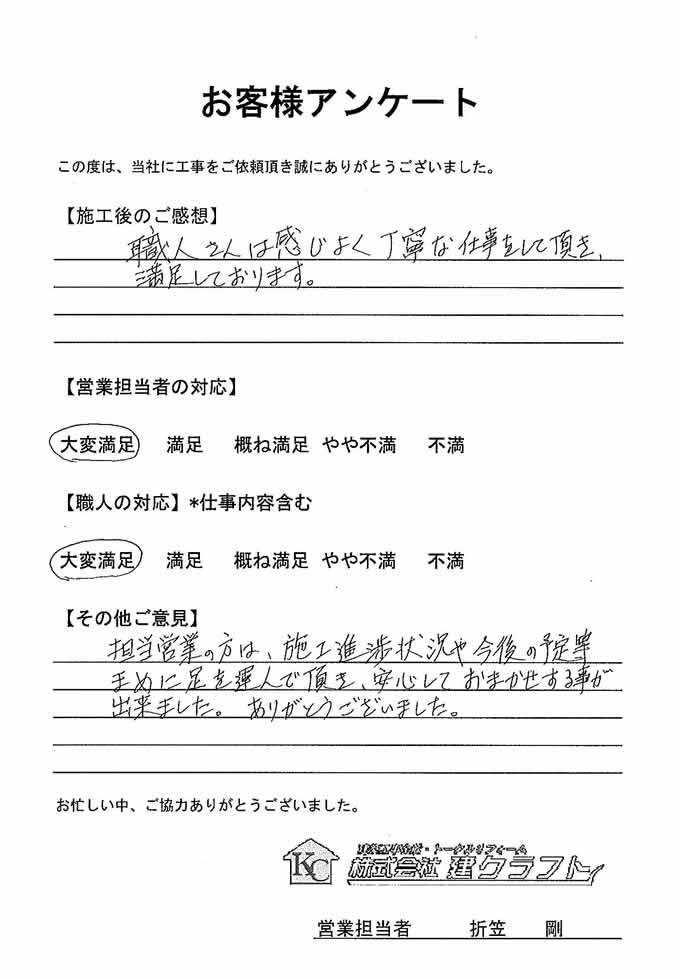 お客様アンケート
この度は、当社に工事をご依頼頂き誠にありがとうございました。
【施工後のご感想】
職人さんは感じよく丁寧な仕事をして頂き、
満足しております。
【営業担当者の対応】
大変満足 満足 概ね満足 やや不満 不満
【職人の対応】*仕事内容含む
大変満足 満足 概ね満足 やや不満 不満
【その他ご意見】
担当営業の方は、施工進渉状況や今後の予定等
まめに足を運んで頂き、安心しておまかせする事が
出来ました。ありがとうございました。
お忙しい中、ご協力ありがとうございました。
KC
・トータルリフォーム
株式会社 建クラフト
営業担当者 折笠 剛